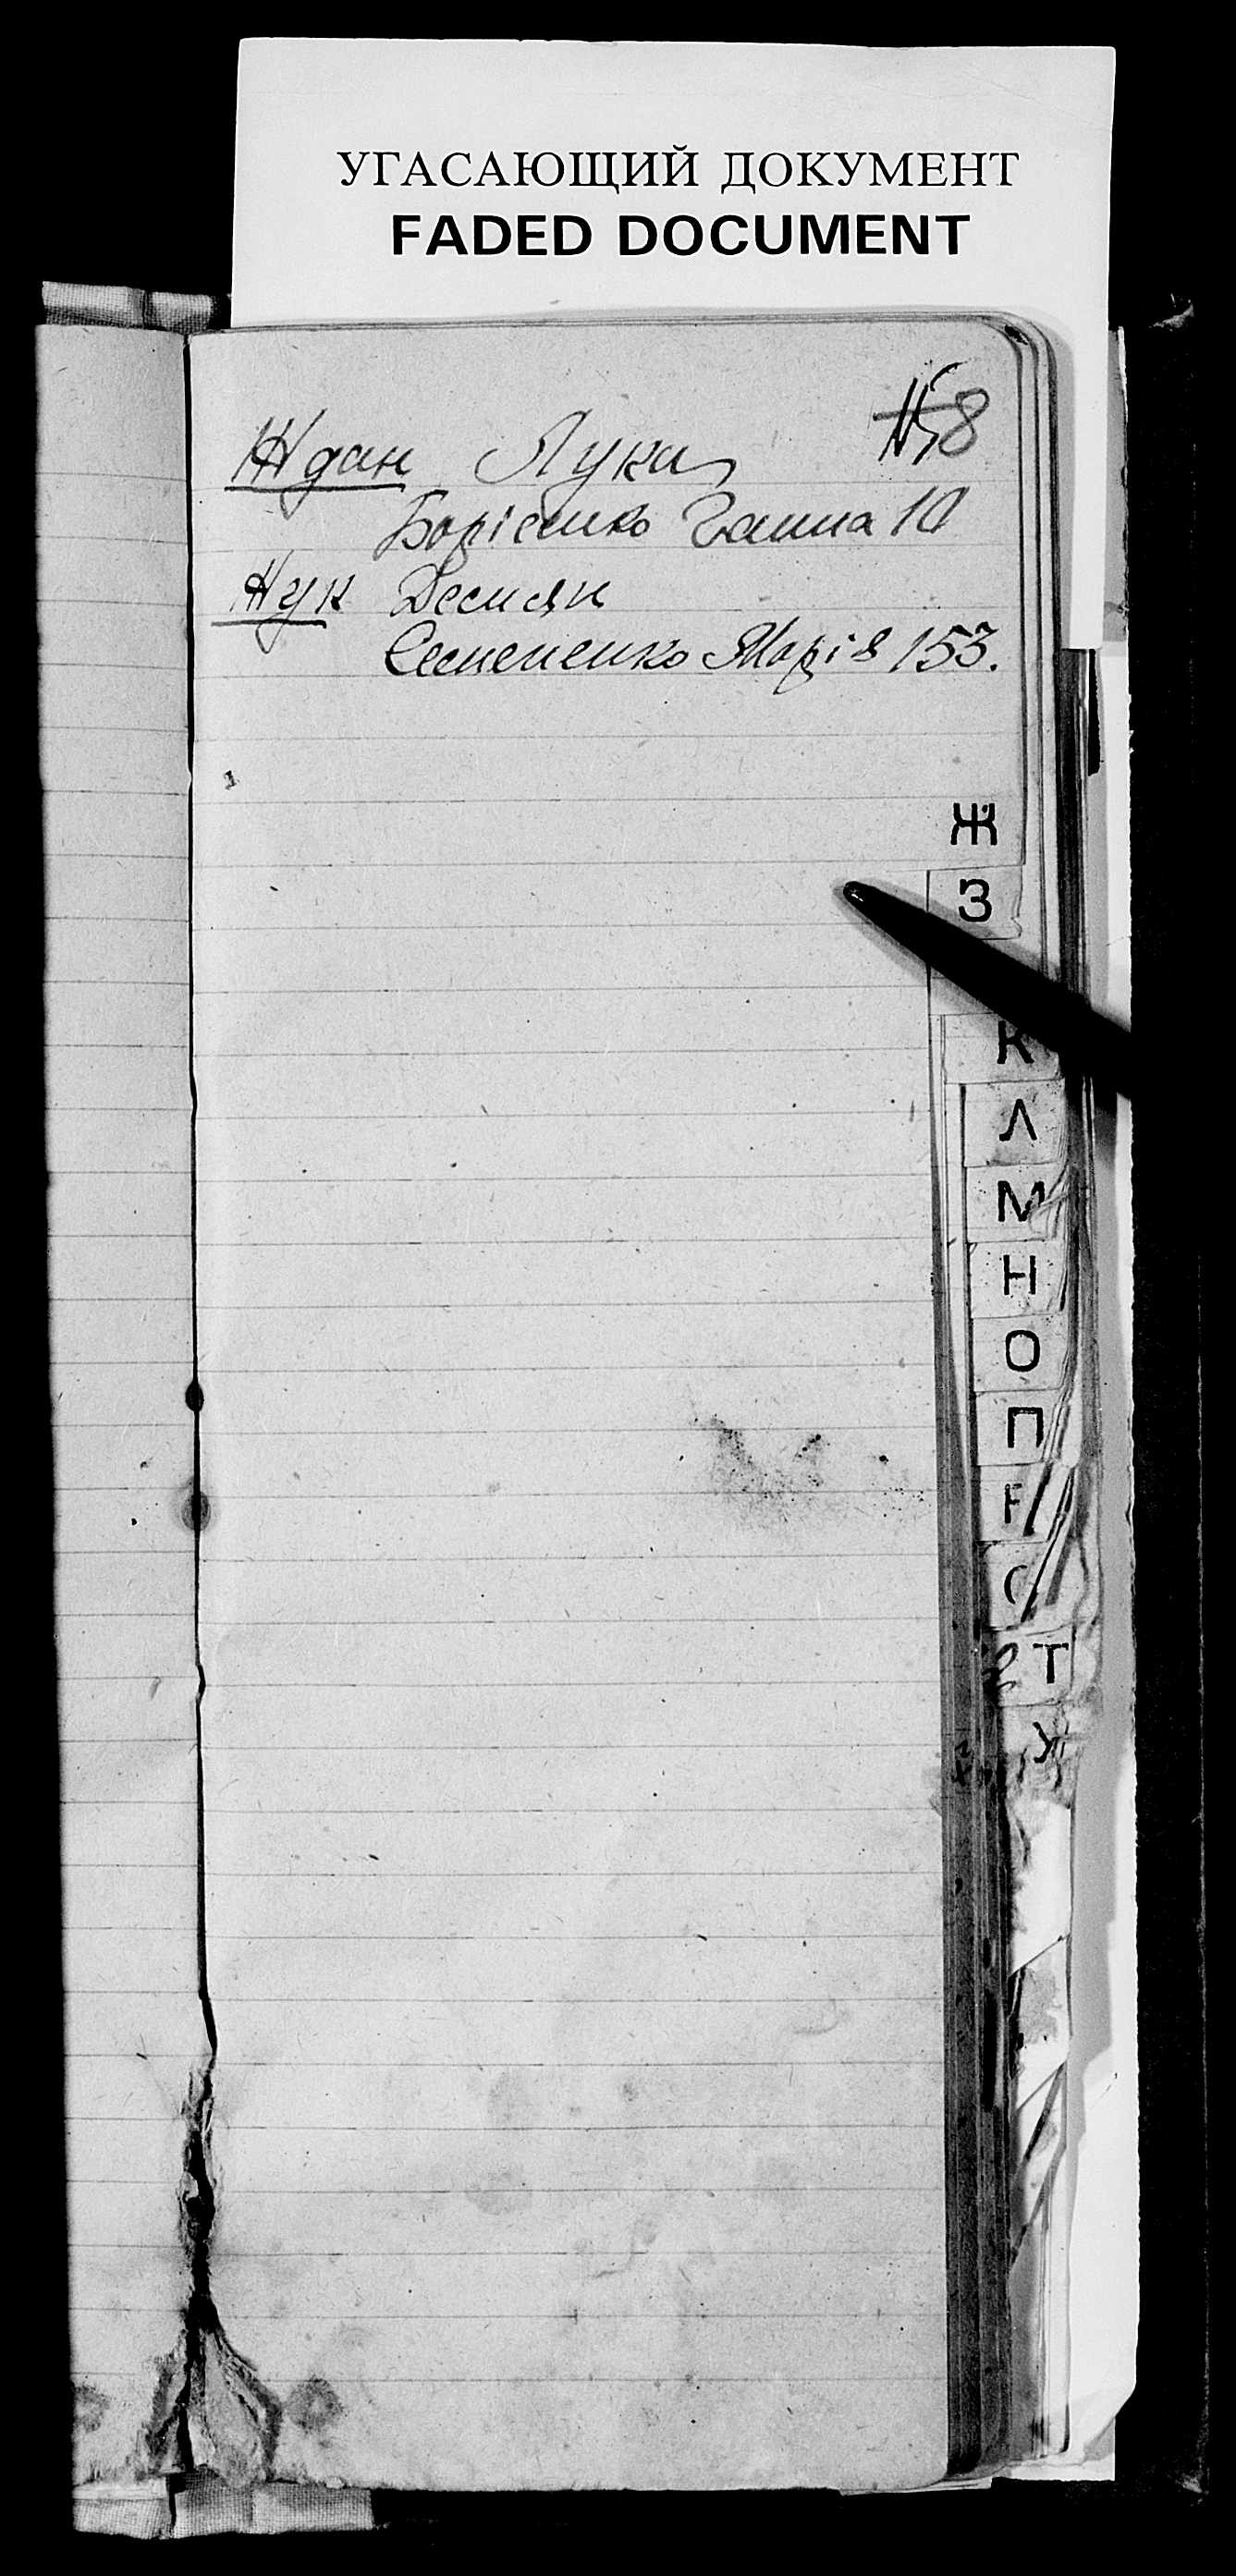 УГАСАЮЩИЙ ДОКУМЕНТ
FADED DOCUMENT
8
Ждан Лука
Борісенко Ганна 10
Жук Демян
Семененко Марія 153.
Ж
З
К
Л
М
Н
О
П
Р
С
Т
У